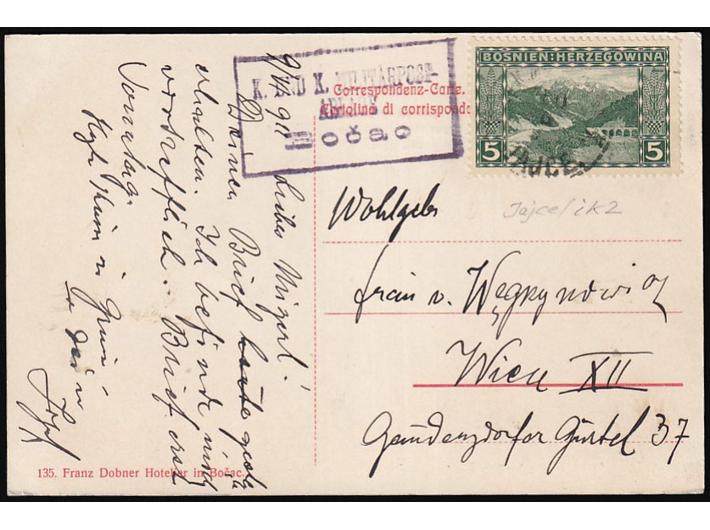 K. UND K. MILITÄRPOST-
ABLAGE
Bočac
Correspondenz-Carte.
Cartolina di corrispond
BOSNIEN-HERZEGOWINA
5 5
JAJCE
9/VI 911
Lieber Migerl!
Deinen Brief heute
erhalten. Ich befinde mich
vortrefflich. Brief erst
Sonntag.
Wohlgeb
Jajce/ik2
Frau v. Węgrzynowicz
Wien XII
Gaudenzdorfer Gürtel 37
135. Franz Dobner Hotelier in Bočac.